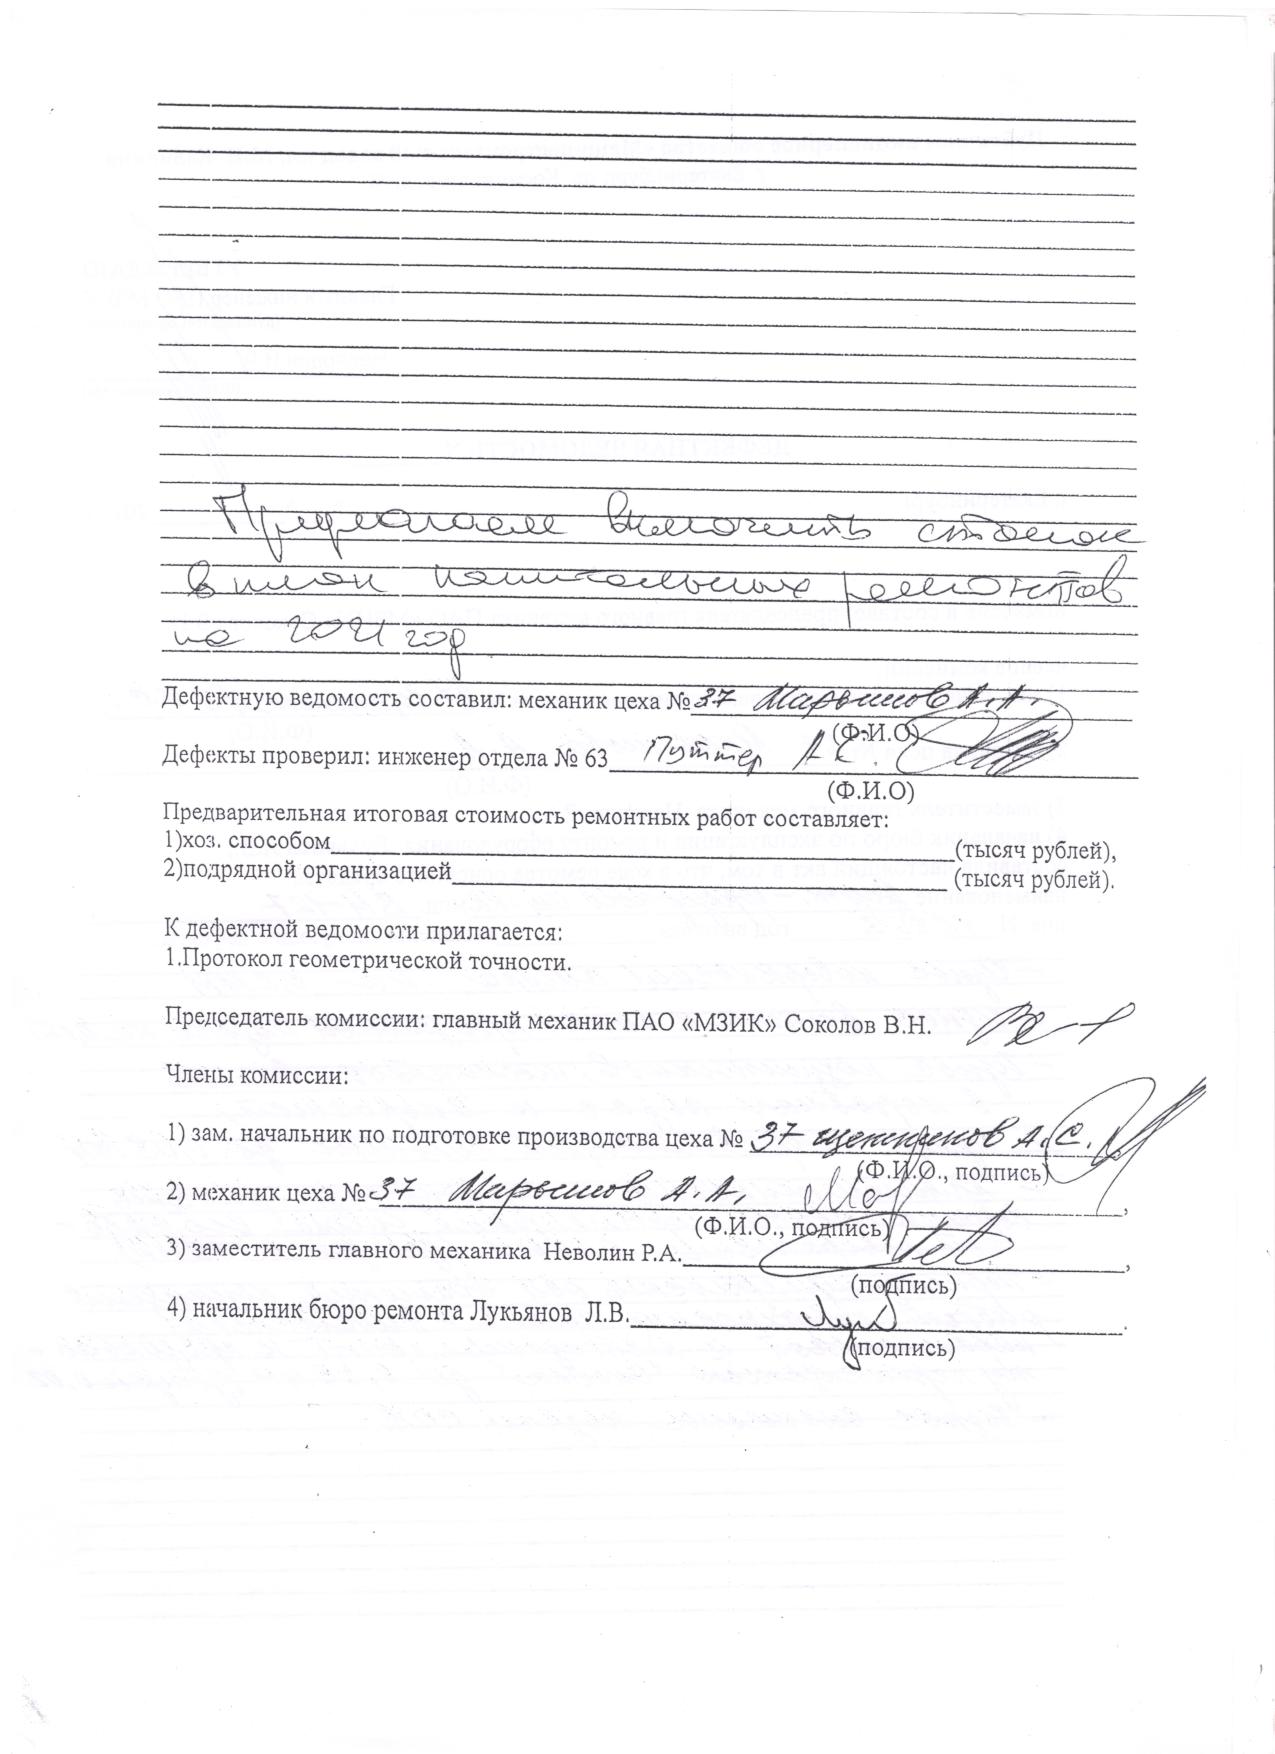 Предлагаем включить станок
в план капитальных ремонтов
на 2021 год
Дефектную ведомость составил: механик цеха № 37 Марьинов А.А.
(Ф.И.О)
Дефекты проверил: инженер отдела № 63 Путтер А.С.
(Ф.И.О)
Предварительная итоговая стоимость ремонтных работ составляет:
1)хоз. способом (тысяч рублей),
2)подрядной организацией (тысяч рублей).
К дефектной ведомости прилагается:
1.Протокол геометрической точности.
Председатель комиссии: главный механик ПАО «МЗИК» Соколов В.Н.
Члены комиссии:
1) зам. начальник по подготовке производства цеха № 37 А.С.
(Ф.И.О., подпись)
2) механик цеха № 37 Марьинов А.А. ,
(Ф.И.О., подпись)
3) заместитель главного механика Неволин Р.А. ,
(подпись)
4) начальник бюро ремонта Лукьянов Л.В. .
(подпись)